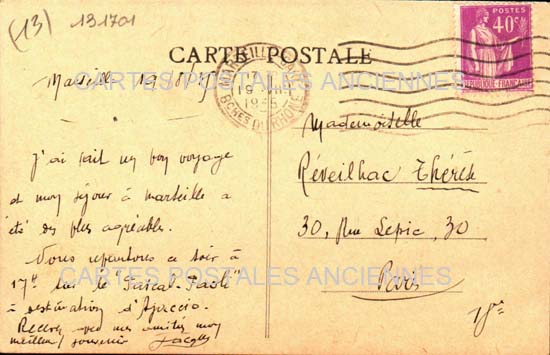 (13) 131701
CARTE POSTALE
POSTES
40c
REPUBLIQUE FRANÇAISE
MARSEILLE GARE
19 VIII
BCHES DU RHONE
CARTES POSTALES ANCIENNES
Marseille
J'ai fait un bon voyage
et mon séjour à marseille a
été des plus agréables.
Nous repartons ce soir à
17h sur le "Pascal-Paoli"
à destination d'Ajaccio.
Recevez avec mes amitiés mon
meilleur souvenir Jacques
Mademoiselle
Réveilhac Thérèse
30, Rue Lepic, 30
Paris
18e
CARTES POSTALES ANCIENNES